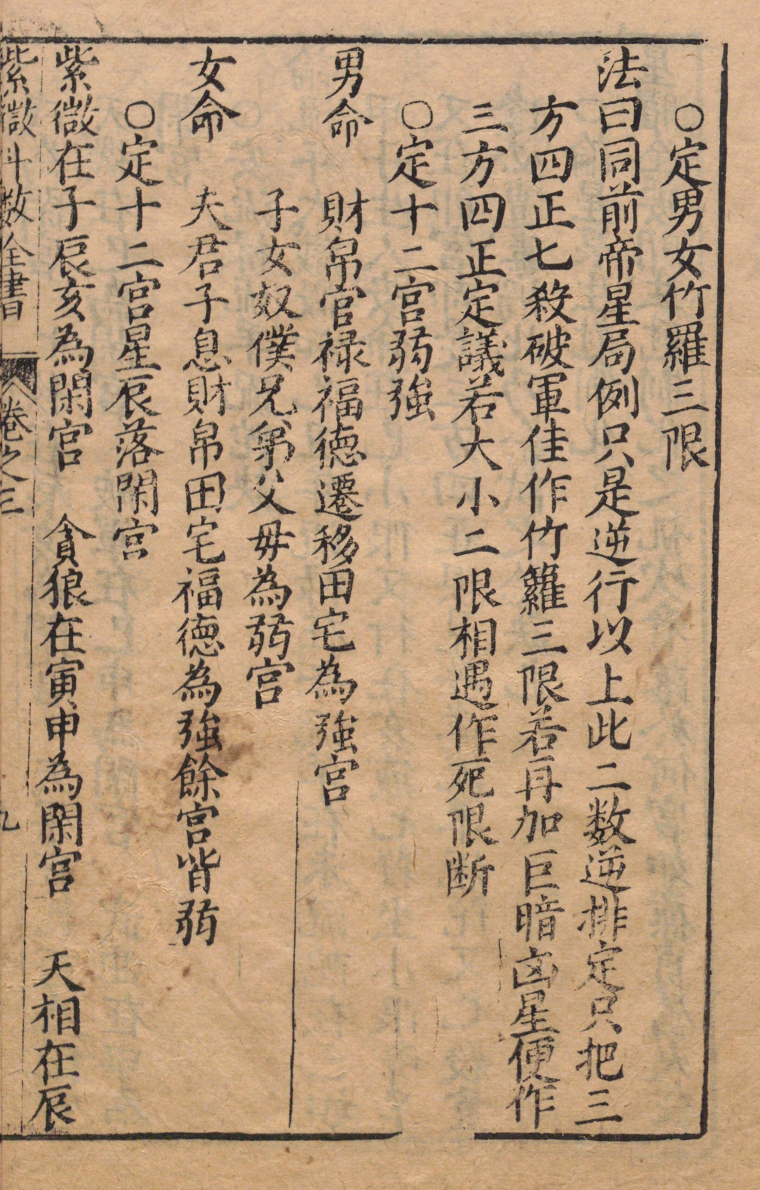 ○定男女竹羅三限
法曰同前帝星局例只是逆行以上此二数逆排定只把三
方四正七殺破軍佳作竹籮三限若再加巨暗凶星便作
三方四正定議若大小二限相遇作死限断
○定十二宫弱強
男命　財帛官禄福德遷移田宅為強宫
子女奴僕兄弟父母為弱宫
女命　夫君子息財帛田宅福德為強餘宫皆弱
○定十二宫星辰落閑宫
紫微在子辰亥為閑宫　貪狼在寅申為閑宫　天相在辰
紫微斗数全書　卷之三　九